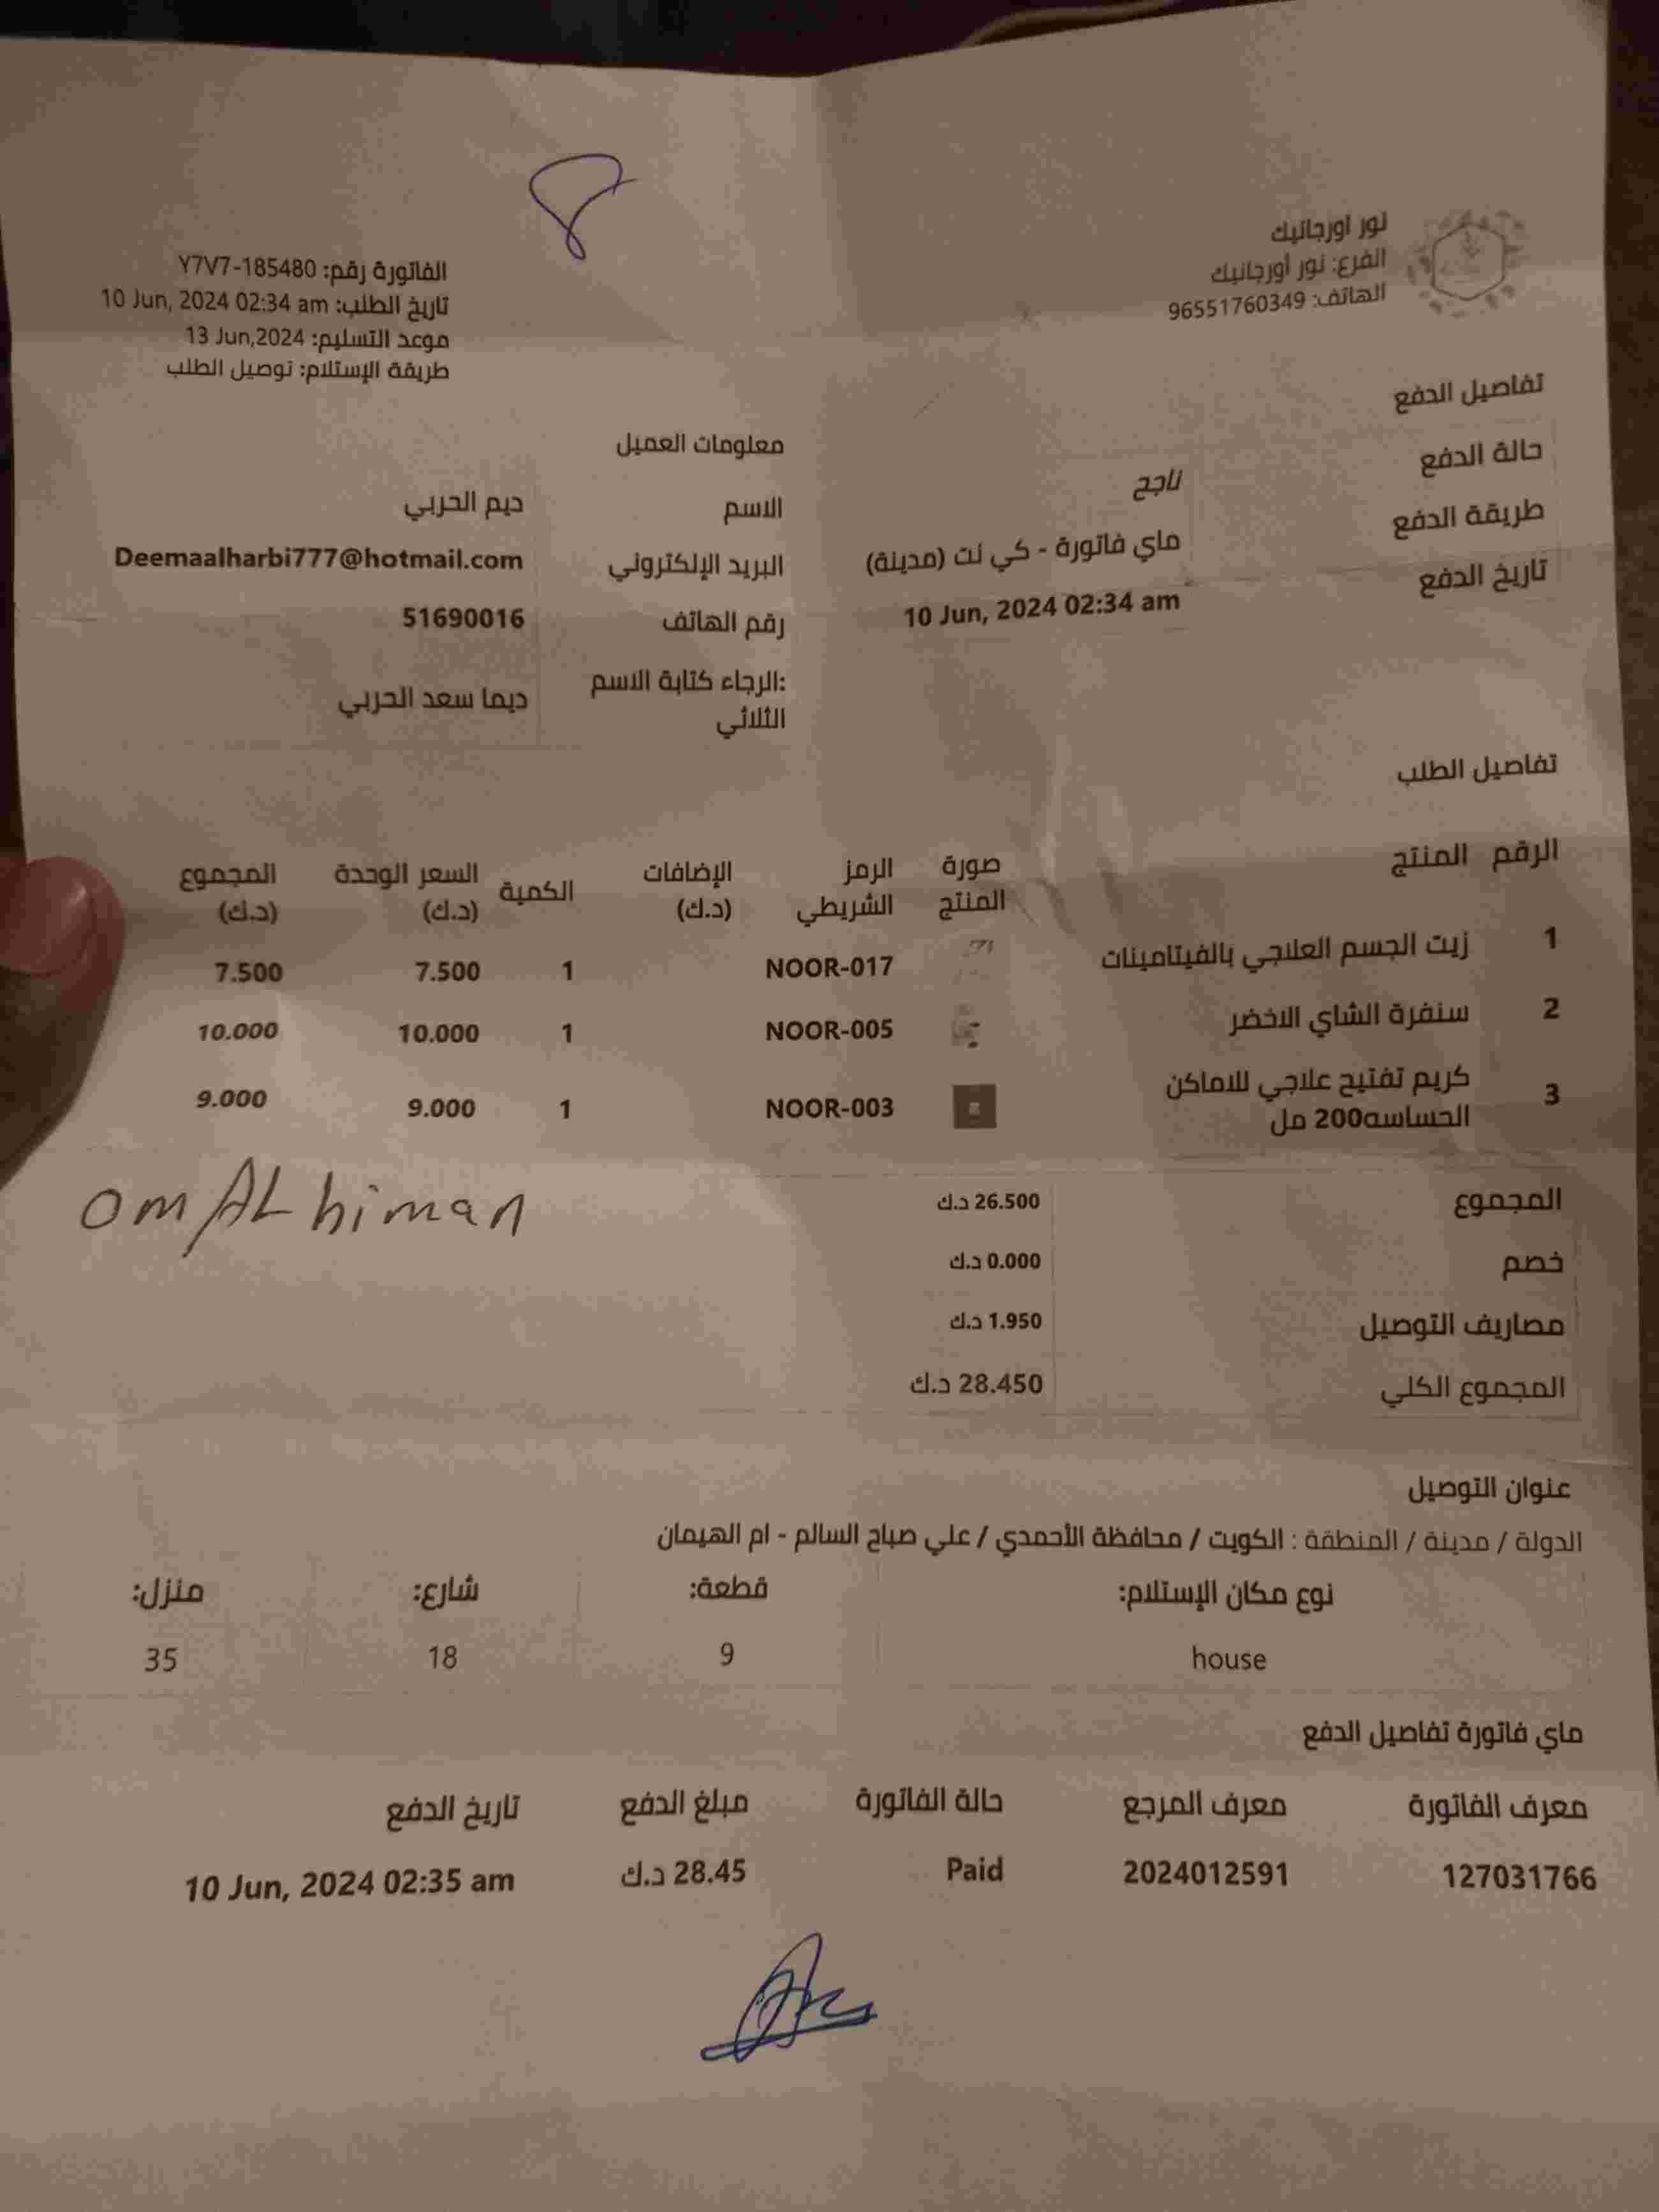 نور اورجانيك
الفرع: نور اورجانيك
الهاتف: 96551760349
الفاتورة رقم: Y7V7-185480
تاريخ الطلب: 10 Jun, 2024 02:34 am
موعد التسليم: 13 Jun,2024
طريقة الإستلام: توصيل الطلب
تفاصيل الدفع
حالة الدفع ناجح
طريقة الدفع ماي فاتورة - كي نت (مدينة)
تاريخ الدفع 10 Jun, 2024 02:34 am
معلومات العميل
الاسم ديم الحربي
البريد الإلكتروني Deemaalharbi777@hotmail.com
رقم الهاتف 51690016
:الرجاء كتابة الاسم ديما سعد الحربي
الثلاثي
تفاصيل الطلب
الرقم المنتج صورة الرمز الإضافات الكمية السعر الوحدة المجموع
المنتج الشريطي (د.ك) (د.ك) (د.ك)
1 زيت الجسم العلاجي بالفيتامينات NOOR-017 1 7.500 7.500
2 سنفرة الشاي الاخضر NOOR-005 1 10.000 10.000
3 كريم تفتيح علاجي للاماكن NOOR-003 1 9.000 9.000
الحساسه200 مل
omALhiman
المجموع 26.500 د.ك
خصم 0.000 د.ك
مصاريف التوصيل 1.950 د.ك
المجموع الكلي 28.450 د.ك
عنوان التوصيل
الدولة / مدينة / المنطقة : الكويت / محافظة الأحمدي / علي صباح السالم - ام الهيمان
نوع مكان الإستلام: قطعة: شارع: منزل:
house 9 18 35
ماي فاتورة تفاصيل الدفع
معرف الفاتورة معرف المرجع حالة الفاتورة مبلغ الدفع تاريخ الدفع
127031766 2024012591 Paid 28.45 د.ك 10 Jun, 2024 02:35 am